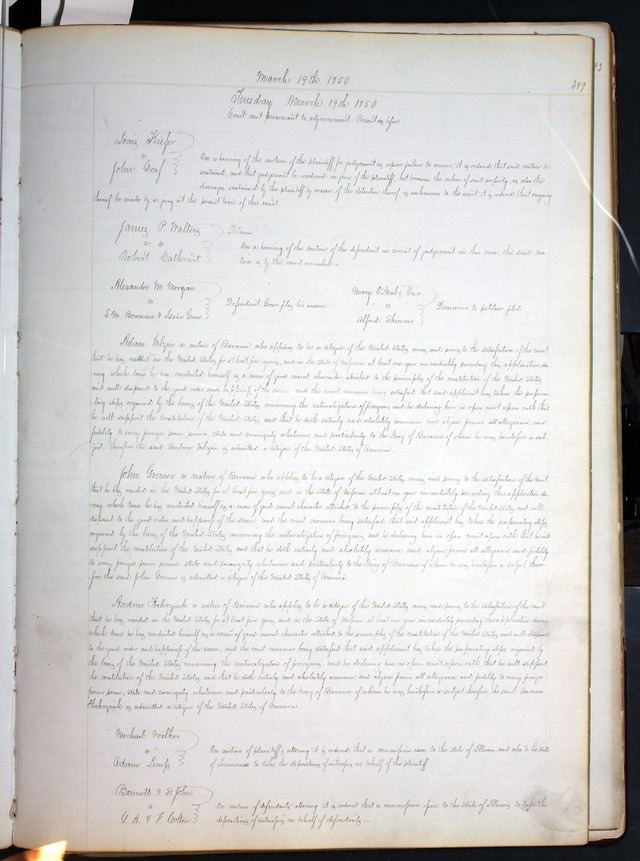 March 19th 1850
389
93
Tuesday March 19th 1850
Court met pursuant to adjournment. Present as before
Louis
vs
John Graf
On a hearing of the motion of the plaintiff for judgement as upon failure to answer, it is ordered that said motion be
sustained, and that judgement be rendered in favor of the plaintiff, but because the value of said property, as also the
damages sustained by the plaintiff by means of the detention thereof, is unknown to the court, it is ordered that enquiry
thereof be made by a jury at the present term of this court.
James P. Walters
vs
Robert Cathcart
On a hearing of the motion of the defendant in arrest of judgement in this case, the said mo
tion is by the court overruled.
Alexander M. Morgan
vs
S. M. Bowman & Isaac
Defendant files his answer
Mary
vs
Alfred
Demurrer to petition filed
Adam a native of Bavaria who applies to be a citizen of the United States comes and proves to the satisfaction of the court
that he has resided in the United States for at least five years, and in the State of Missouri at least one year immediately preceding this application, du
ring which time he has conducted himself as a man of good moral character attached to the principles of the constitution of the United States,
and well disposed to the good order and happiness of the same. and the court moreover being satisfied that said applicant has taken the prepara
tory steps required by the laws of the United States concerning the naturalization of foreigners, and he declaring here in open court upon oath that
he will support the Constitution of the United States, and that he doth entirely and absolutely renounce and abjure forever all allegiance and
fidelity to every foreign power prince, state and sovereignty whatsoever and particularly to the King of Bavaria of whom he was heretofore a sub
ject, therefore the said is admitted a citizen of the United States of America.
John a native of Bavaria who applies to be a citizen of the United States comes and proves to the satisfaction of the court
that he has resided in the United States for at least five years and in the State of Missouri at least one year immediately preceding this application du
ring which time he has conducted himself as a man of good moral character attached to the principles of the constitution of the United States and well
disposed to the good order and happiness of the same, and the court moreover being satisfied that said applicant has taken the preparatory steps
required by the laws of the United States concerning the naturalization of foreigners, and he declaring here in open court upon oath that he will
support the constitution of the United States and that he doth entirely and absolutely renounce and abjure forever all allegiance and fidelity
to every foreign power prince state and sovereignty whatsoever and particularly to the King of Bavaria of whom he was heretofore a subject, there
fore the said John is admitted a citizen of the United States of America.
Andrew a native of Bavaria who applies to be a citizen of the United States comes and proves to the satisfaction of the court
that he has resided in the United States for at least five years and in the State of Missouri at least one year immediately preceding this application during
which time he has conducted himself as a man of good moral character attached to the principles of the constitution of the United States, and well disposed
to the good order and happiness of the same, and the court moreover being satisfied that said applicant has taken the preparatory steps required by
the laws of the United States concerning the naturalization of foreigners, and he declaring here in open court upon oath that he will support
the constitution of the United States and that he doth entirely and absolutely renounce and abjure forever all allegiance and fidelity to every foreign
power prince, state and sovereignty whatsoever and particularly to the king of Bavaria of whom he was heretofore a subject therefore the said Andrew
is admitted a citizen of the United States of America.
Michael
vs
Adam Lemp
On motion of plaintiff's attorney it is ordered that a commission issue to the state of Illinois and also to the state
of Tennessee to take the depositions of witnesses on behalf of the plaintiff
Bennett & St. John
vs
G. A. & F. Colton
On motion of defendants attorney it is ordered that a commission issue to the State of Illinois to take the
depositions of witnesses on behalf of defendants